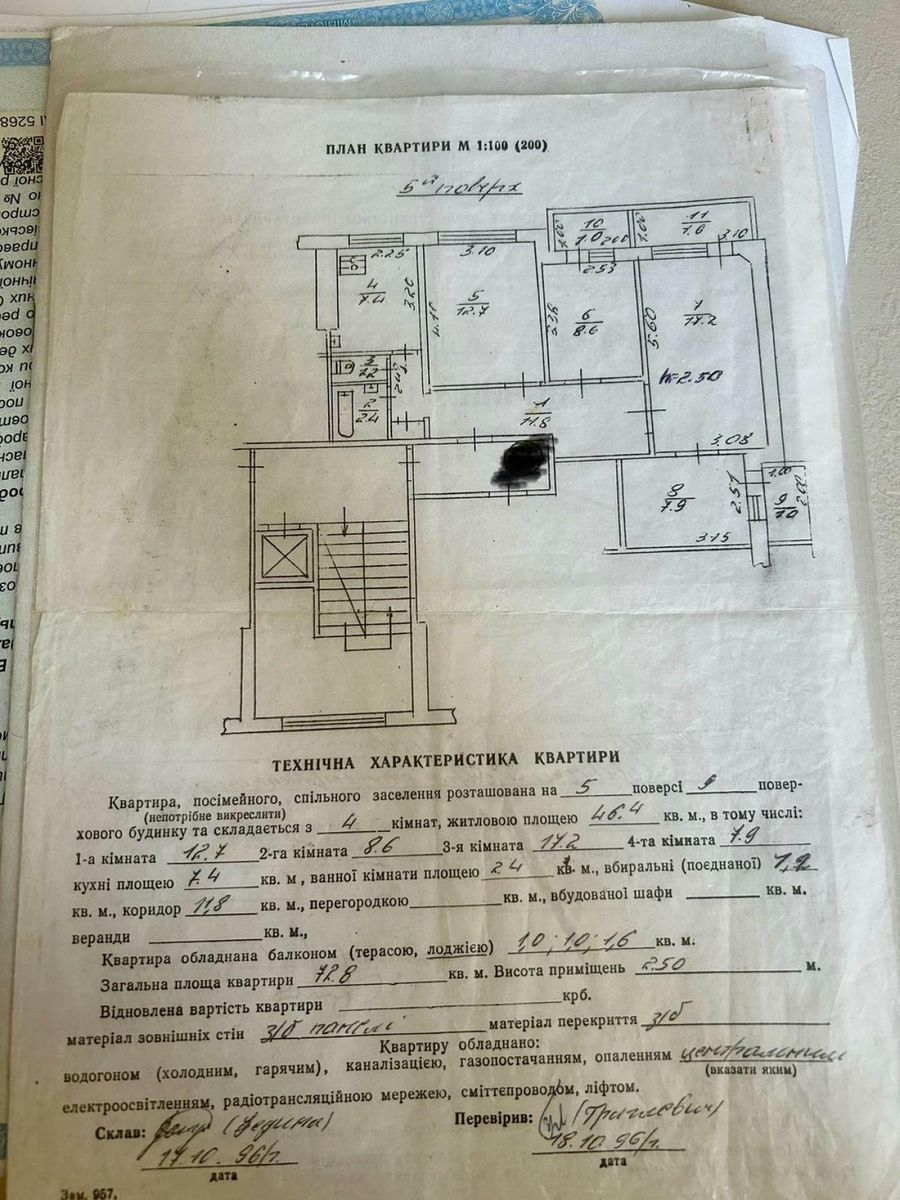 ПЛАН КВАРТИРИ М 1:100 (200)
5й поверх
10
1.0
1.00
2.00
11
1.6
1.00
3.10
2.25
4
7.4
3.20
3.10
5
12.7
4.10
2.53
6
8.6
3.38
7
17.2
5.60
h=2.50
3.08
3
1.2
2
2.4
1
11.8
8
7.9
2.51
3.15
1.00
9
1.0
2.00
ТЕХНІЧНА ХАРАКТЕРИСТИКА КВАРТИРИ
Квартира, посімейного, спільного заселення розташована на 5 поверсі 9 повер-
(непотрібне викреслити)
хового будинку та складається з 4 кімнат, житловою площею 46.4 кв. м., в тому числі:
1-а кімната 12.7 2-га кімната 8.6 3-я кімната 17.2 4-та кімната 7.9
кухні площею 7.4 кв. м, ванної кімнати площею 2.4 кв. м., вбиральні (поєднаної) 1,2
кв. м., коридор 11,8 кв. м., перегородкою кв. м., вбудованої шафи кв. м.
веранди кв. м.,
Квартира обладнана балконом (терасою, лоджією) 1,0; 1,0; 1,6 кв. м.
Загальна площа квартири 72.8 кв. м. Висота приміщень 2.50 м.
Відновлена вартість квартири крб.
матеріал зовнішніх стін з/б панелі матеріал перекриття з/б
Квартиру обладнано:
водогоном (холодним, гарячим), каналізацією, газопостачанням, опаленням центральним
(вказати яким)
електроосвітленням, радіотрансляційною мережею, сміттєпроводом, ліфтом.
Склав: Перевірив:
17.10.96 г. 18.10.96 г.
дата дата
Зам. 957.